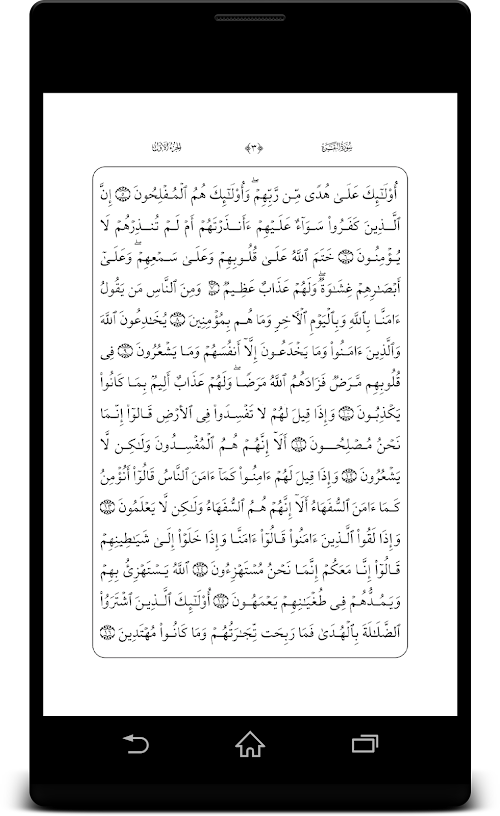 سُورَةُ البَقَرَةِ ﴿٣﴾ الجزء الأول
أُوْلَٰٓئِكَ عَلَىٰ هُدًى مِّن رَّبِّهِمْۖ وَأُوْلَٰٓئِكَ هُمُ ٱلْمُفْلِحُونَ ۝٥ إِنَّ
ٱلَّذِينَ كَفَرُواْ سَوَآءٌ عَلَيْهِمْ ءَأَنذَرْتَهُمْ أَمْ لَمْ تُنذِرْهُمْ لَا
يُؤْمِنُونَ ۝٦ خَتَمَ ٱللَّهُ عَلَىٰ قُلُوبِهِمْ وَعَلَىٰ سَمْعِهِمْۖ وَعَلَىٰٓ
أَبْصَٰرِهِمْ غِشَٰوَةٌۖ وَلَهُمْ عَذَابٌ عَظِيمٌ ۝٧ وَمِنَ ٱلنَّاسِ مَن يَقُولُ
ءَامَنَّا بِٱللَّهِ وَبِٱلْيَوْمِ ٱلْأٓخِرِ وَمَا هُم بِمُؤْمِنِينَ ۝٨ يُخَٰدِعُونَ ٱللَّهَ
وَٱلَّذِينَ ءَامَنُواْ وَمَا يَخْدَعُونَ إِلَّآ أَنفُسَهُمْ وَمَا يَشْعُرُونَ ۝٩ فِى
قُلُوبِهِم مَّرَضٌ فَزَادَهُمُ ٱللَّهُ مَرَضًاۖ وَلَهُمْ عَذَابٌ أَلِيمٌۢ بِمَا كَانُواْ
يَكْذِبُونَ ۝١٠ وَإِذَا قِيلَ لَهُمْ لَا تُفْسِدُواْ فِى ٱلْأَرْضِ قَالُوٓاْ إِنَّمَا
نَحْنُ مُصْلِحُونَ ۝١١ أَلَآ إِنَّهُمْ هُمُ ٱلْمُفْسِدُونَ وَلَٰكِن لَّا
يَشْعُرُونَ ۝١٢ وَإِذَا قِيلَ لَهُمْ ءَامِنُواْ كَمَآ ءَامَنَ ٱلنَّاسُ قَالُوٓاْ أَنُؤْمِنُ
كَمَآ ءَامَنَ ٱلسُّفَهَآءُ أَلَآ إِنَّهُمْ هُمُ ٱلسُّفَهَآءُ وَلَٰكِن لَّا يَعْلَمُونَ ۝١٣
وَإِذَا لَقُواْ ٱلَّذِينَ ءَامَنُواْ قَالُوٓاْ ءَامَنَّا وَإِذَا خَلَوْاْ إِلَىٰ شَيَٰطِينِهِمْ
قَالُوٓاْ إِنَّا مَعَكُمْ إِنَّمَا نَحْنُ مُسْتَهْزِءُونَ ۝١٤ ٱللَّهُ يَسْتَهْزِئُ بِهِمْ
وَيَمُدُّهُمْ فِى طُغْيَٰنِهِمْ يَعْمَهُونَ ۝١٥ أُوْلَٰٓئِكَ ٱلَّذِينَ ٱشْتَرَوُاْ
ٱلضَّلَٰلَةَ بِٱلْهُدَىٰ فَمَا رَبِحَت تِّجَٰرَتُهُمْ وَمَا كَانُواْ مُهْتَدِينَ ۝١٦